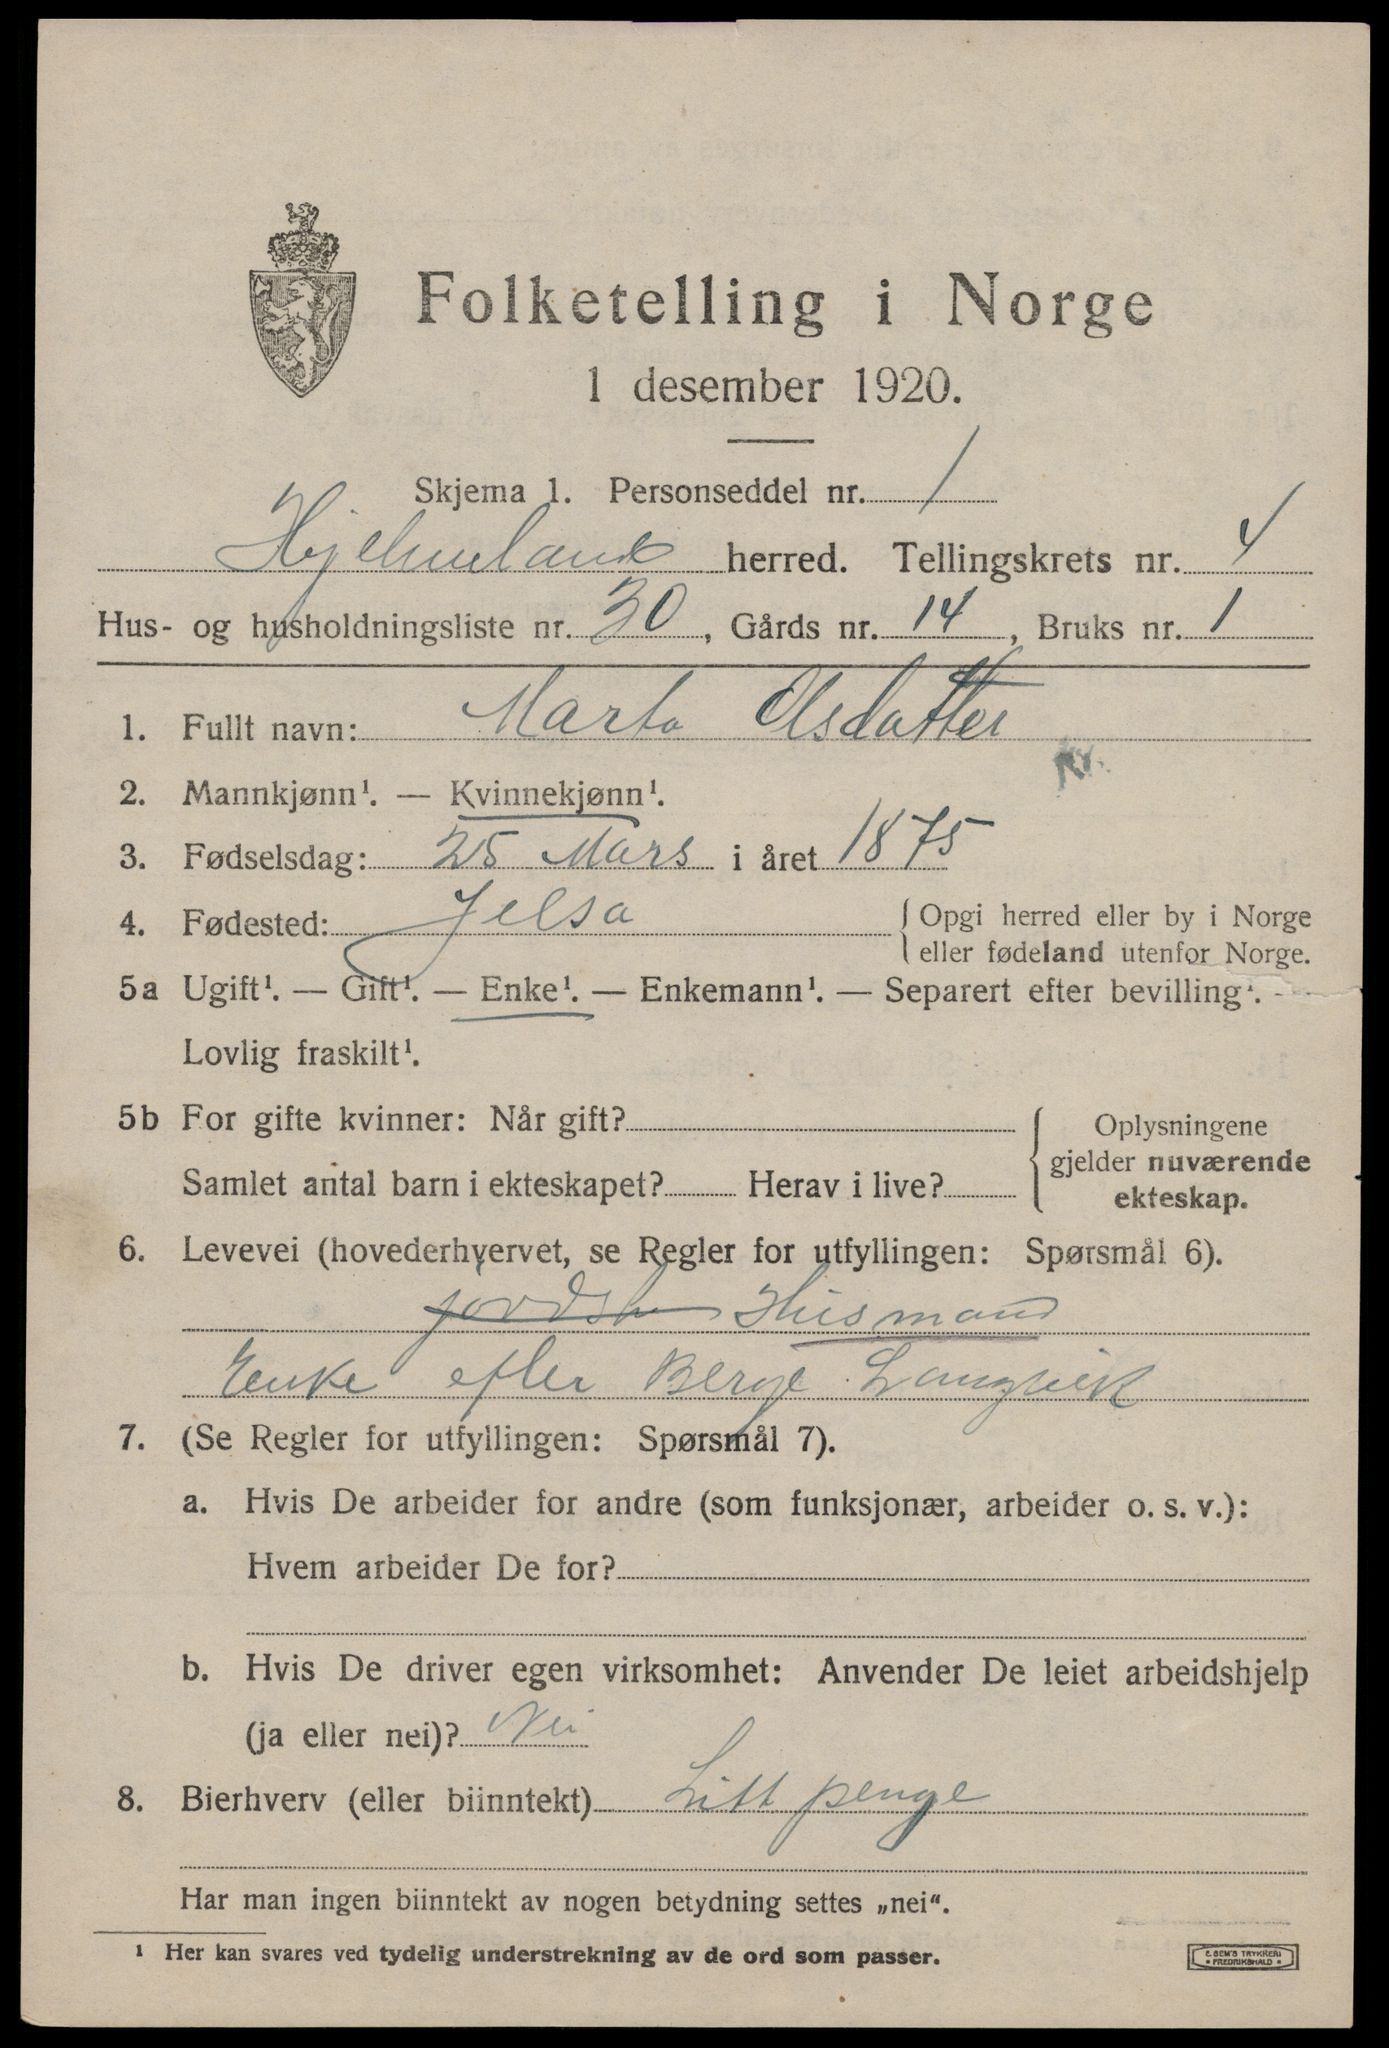 Folketelling i Norge
1 desember 1920.
Skjema 1. Personseddel nr. 1
Hjelmeland herred. Tellingskrets nr. 4
Hus- og husholdningsliste nr. 30, Gårds nr. 14, Bruks nr. 1
1. Fullt navn: Marta Olsdatter
2. Mannkjønn¹. — Kvinnekjønn¹.
3. Fødselsdag: 25 Mars i året 1875
4. Fødested: Jelsa { Opgi herred eller by i Norge
eller fødeland utenfor Norge.
5a Ugift¹. — Gift¹. — Enke¹. — Enkemann¹. — Separert efter bevilling¹. —
Lovlig fraskilt¹.
5b For gifte kvinner: Når gift?
Samlet antal barn i ekteskapet? Herav i live?
{ Oplysningene
gjelder nuværende
ekteskap.
6. Levevei (hovederhvervet, se Regler for utfyllingen: Spørsmål 6).
Husmand
Enke efter Berge Langvik
7. (Se Regler for utfyllingen: Spørsmål 7).
a. Hvis De arbeider for andre (som funksjonær, arbeider o. s. v.):
Hvem arbeider De for?
b. Hvis De driver egen virksomhet: Anvender De leiet arbeidshjelp
(ja eller nei)? Nei
8. Bierhverv (eller biinntekt) Litt penge
Har man ingen biinntekt av nogen betydning settes „nei“.
¹ Her kan svares ved tydelig understrekning av de ord som passer.
E. SEM'S TRYKKERI
FREDRIKSHALD